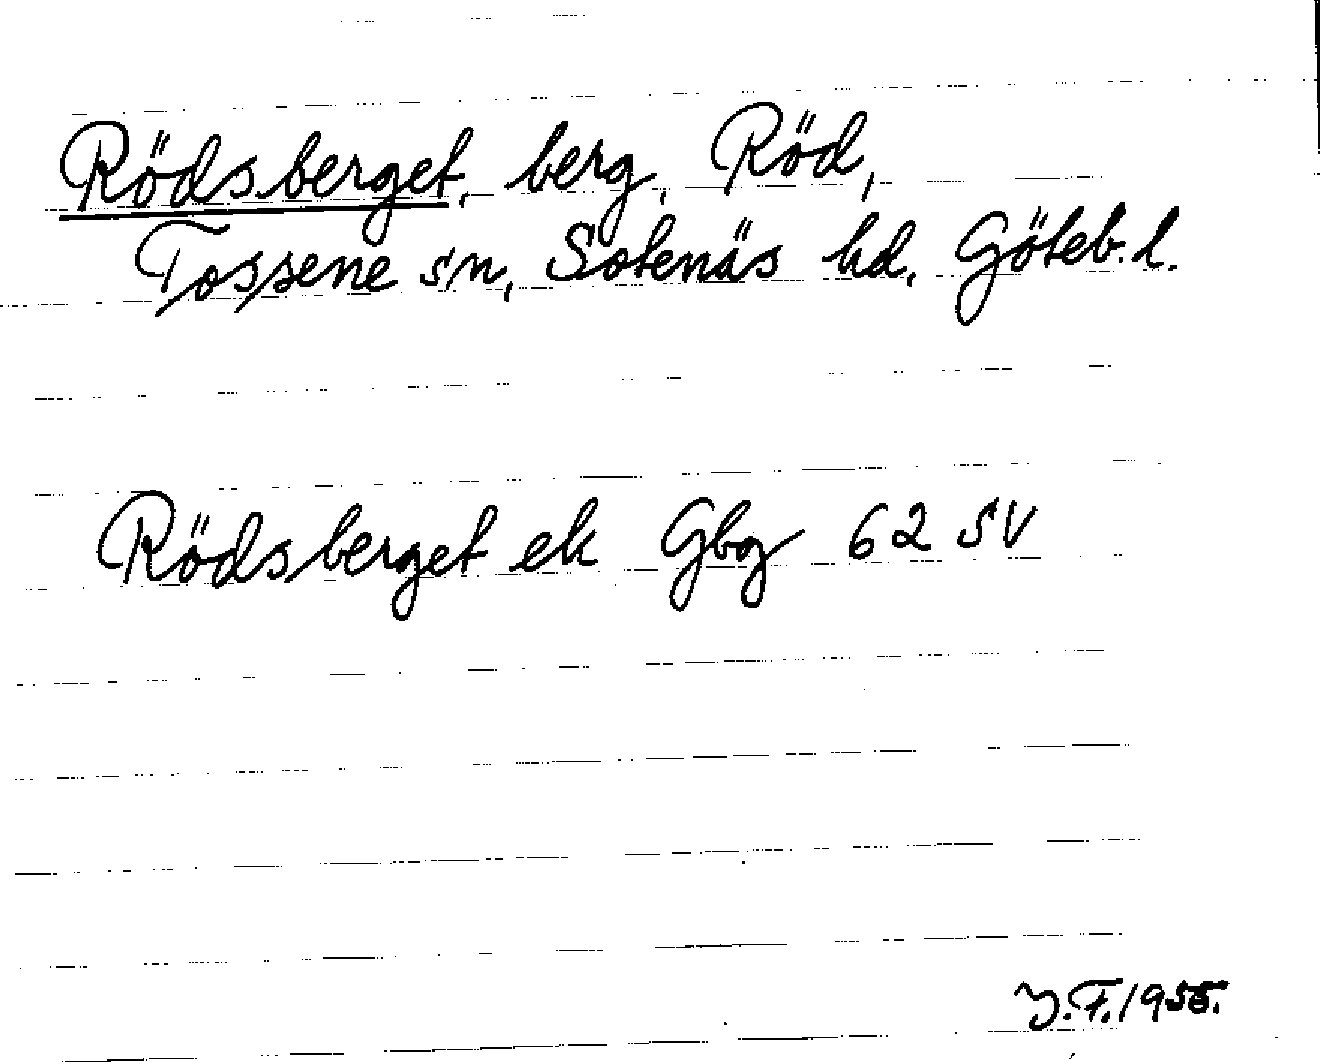 Rödsberget, berg, Röd,
Tossene sn, Sotenäs hd, Göteb. l.
Rödsberget ek Gbg 62 SV